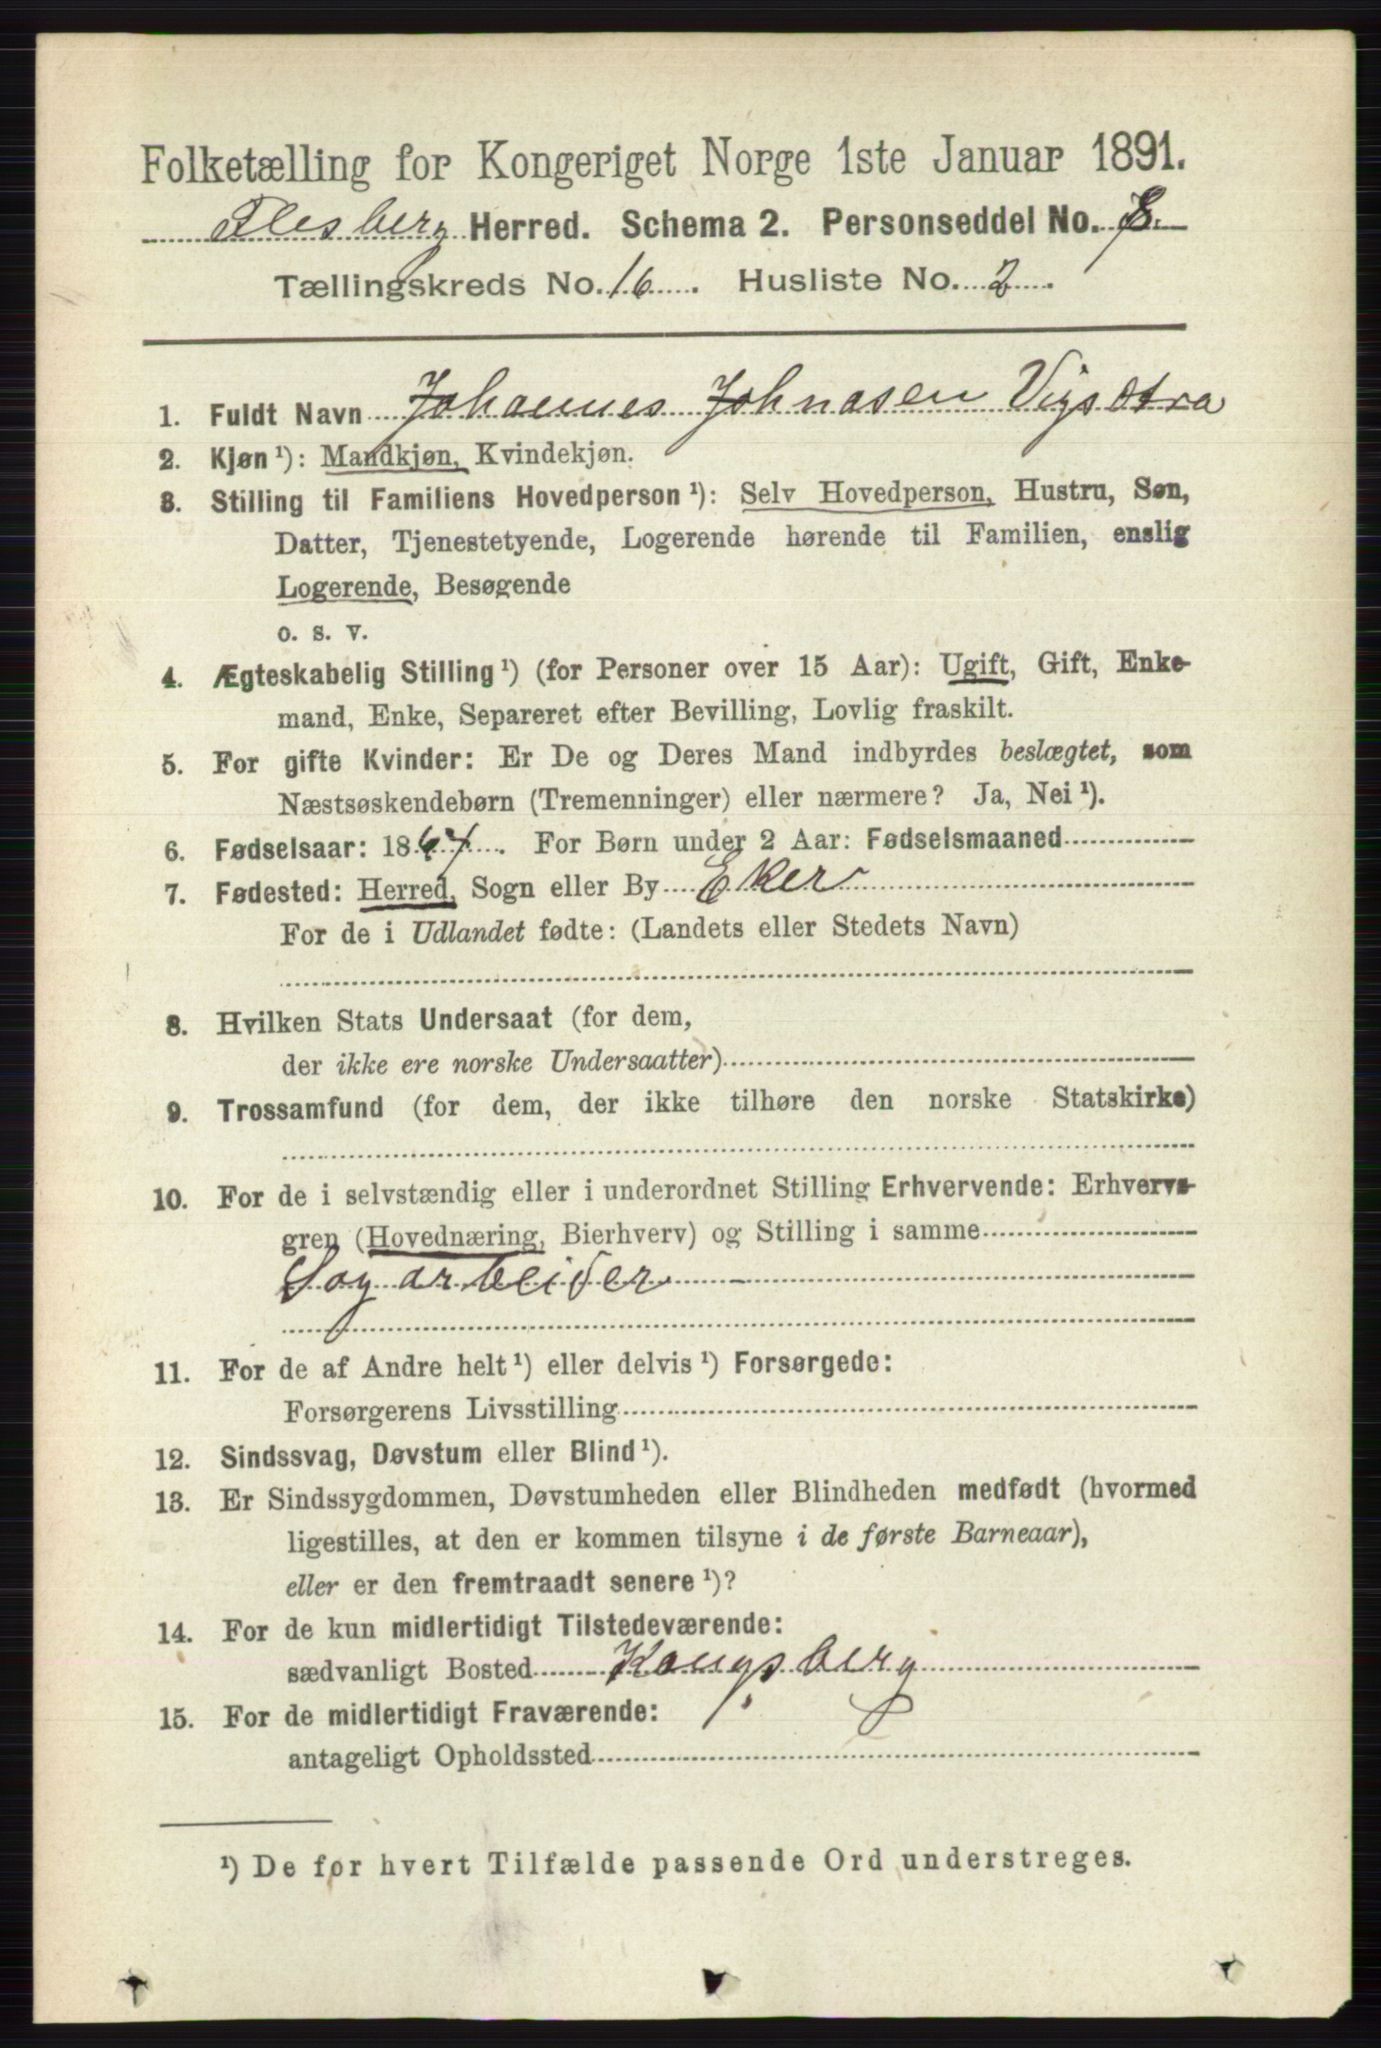 Folketælling for Kongeriget Norge 1ste Januar 1891.
Flesberg Herred. Schema 2. Personseddel No. 8.
Tællingskreds No. 16. Husliste No. 2.
1. Fuldt Navn Johannes Johnasen Vigsdtra
2. Kjøn ¹): Mandkjøn, Kvindekjøn.
3. Stilling til Familiens Hovedperson ¹): Selv Hovedperson, Hustru, Søn,
Datter, Tjenestetyende, Logerende hørende til Familien, enslig
Logerende, Besøgende
o. s. v.
4. Ægteskabelig Stilling ¹) (for Personer over 15 Aar): Ugift, Gift, Enke-
mand, Enke, Separeret efter Bevilling, Lovlig fraskilt.
5. For gifte Kvinder: Er De og Deres Mand indbyrdes beslægtet, som
Næstsøskendebørn (Tremenninger) eller nærmere? Ja, Nei ¹).
6. Fødselsaar: 1867. For Børn under 2 Aar: Fødselsmaaned
7. Fødested: Herred, Sogn eller By Eker
For de i Udlandet fødte: (Landets eller Stedets Navn)
8. Hvilken Stats Undersaat (for dem,
der ikke ere norske Undersaatter)
9. Trossamfund (for dem, der ikke tilhøre den norske Statskirke)
10. For de i selvstændig eller i underordnet Stilling Erhvervende: Erhvervs-
gren (Hovednæring, Bierhverv) og Stilling i samme
Sagarbeider
11. For de af Andre helt ¹) eller delvis ¹) Forsørgede:
Forsørgerens Livsstilling
12. Sindssvag, Døvstum eller Blind ¹).
13. Er Sindssygdommen, Døvstumheden eller Blindheden medfødt (hvormed
ligestilles, at den er kommen tilsyne i de første Barneaar),
eller er den fremtraadt senere ¹)?
14. For de kun midlertidigt Tilstedeværende:
sædvanligt Bosted Kongsberg
15. For de midlertidigt Fraværende:
antageligt Opholdssted
¹) De for hvert Tilfælde passende Ord understreges.